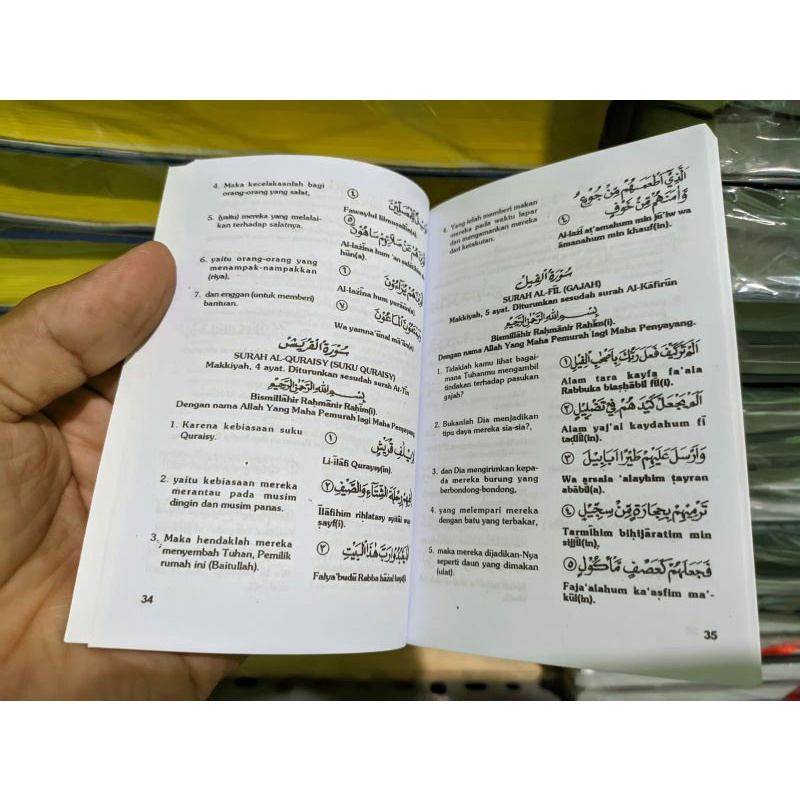 4. Maka kecelakaanlah bagi
orang-orang yang salat,
٤
Fawaylul lilmuṣallīn(a).
5. (yaitu) mereka yang melalai-
kan terhadap salatnya.
٥
هُمْ عَنْ صَلَاتِهِمْ سَاهُوْنَ
Al-lażīna hum 'an
hūn(a).
6. yaitu orang-orang yang
menampak-nampakkan
(riya),
٦
هُمْ يُرَاۤءُوْنَ
Al-lażīna hum yurā'ūn(a).
7. dan enggan (untuk memberi)
bantuan.
٧
وَيَمْنَعُوْنَ الْمَاعُوْنَ
Wa yamna'ūnal mā'ūn(a).
سُوْرَةُ الْقُرَيْشِ
SURAH AL-QURAISY (SUKU QURAISY)
Makkiyah, 4 ayat. Diturunkan sesudah surah At-Tīn
بِسْمِ اللهِ الرَّحْمٰنِ الرَّحِيْمِ
Bismillāhir Raḥmānir Raḥīm(i).
Dengan nama Allah Yang Maha Pemurah lagi Maha Penyayang
1. Karena kebiasaan suku
Quraisy.
١
لِاِيْلٰفِ قُرَيْشٍ
Li-īlāfi Quraysy(in).
2. yaitu kebiasaan mereka
merantau pada musim
dingin dan musim panas.
رِحْلَةَ الشِّتَاۤءِ وَالصَّيْفِ ٢
Īlāfihim riḥlatasy syitā'i waṣ
ṣayf(i).
3. Maka hendaklah mereka
menyembah Tuhan, Pemilik
rumah ini (Baitullah).
فَلْيَعْبُدُوْا رَبَّ هٰذَا الْبَيْتِ ٣
Falya'budū Rabba hāżal bay(i)
34
الَّذِيْٓ اَطْعَمَهُمْ مِّنْ جُوْعٍ
وَّاٰمَنَهُمْ مِّنْ خَوْفٍ ٤
4. Yang telah memberi makan
mereka pada waktu lapar
dan mengamankan mereka
dari ketakutan.
Al-lażī aṭ'amahum min jū'iw wa
āmanahum min khauf(in).
سُوْرَةُ الْفِيْلِ
SURAH AL-FĪL (GAJAH)
Makkiyah, 5 ayat. Diturunkan sesudah surah Al-Kāfirūn
بِسْمِ اللهِ الرَّحْمٰنِ الرَّحِيْمِ
Bismillāhir Raḥmānir Raḥīm(i).
Dengan nama Allah Yang Maha Pemurah lagi Maha Penyayang.
1. Tidakkah kamu lihat bagai-
mana Tuhanmu mengambil
tindakan terhadap pasukan
gajah?
اَلَمْ تَرَ كَيْفَ فَعَلَ رَبُّكَ بِاَصْحٰبِ الْفِيْلِ ١
Alam tara kayfa fa'ala
Rabbuka biaṣḥābil fīl(i).
2. Bukankah Dia menjadikan
tipu daya mereka sia-sia?,
اَلَمْ يَجْعَلْ كَيْدَهُمْ فِيْ تَضْلِيْلٍ ٢
Alam yaj'al kaydahum fī
taḍlīl(in).
3. dan Dia mengirimkan kepa-
da mereka burung yang
berbondong-bondong,
وَّاَرْسَلَ عَلَيْهِمْ طَيْرًا اَبَابِيْلَ ٣
Wa arsala 'alayhim ṭayran
abābīl(a).
4. yang melempari mereka
dengan batu yang terbakar,
تَرْمِيْهِمْ بِحِجَارَةٍ مِّنْ سِجِّيْلٍ ٤
Tarmīhim biḥijāratim min
sijjīl(in).
5. maka mereka dijadikan-Nya
seperti daun yang dimakan
(ulat).
فَجَعَلَهُمْ كَعَصْفٍ مَّأْكُوْلٍ ٥
Faja'alahum ka'aṣfim ma'-
kūl(in).
35